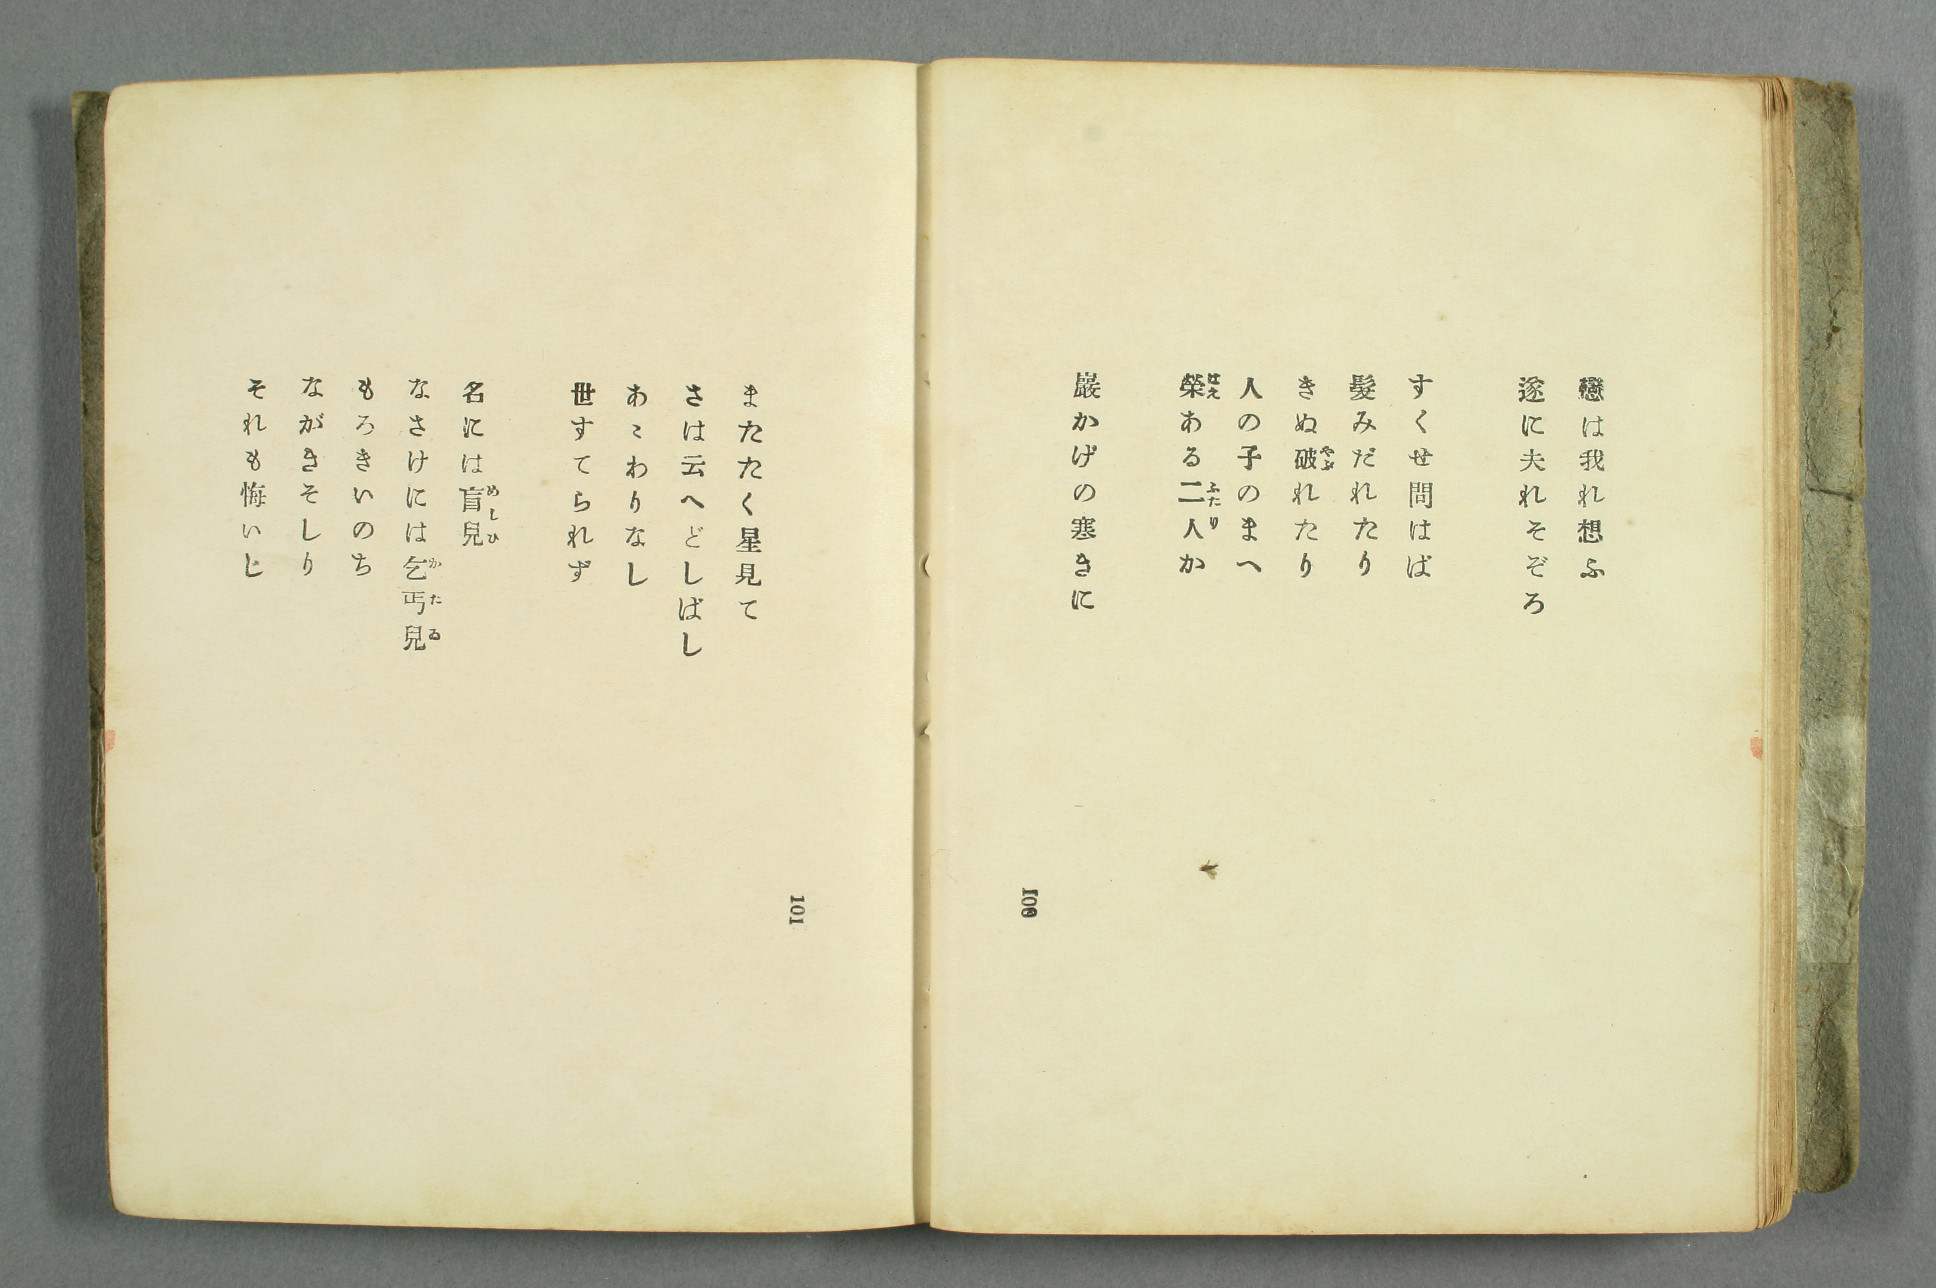 戀は我れ想ふ
遂に夫れそぞろ
すくせ問はば
髮みだれたり
きぬ破れたり
やぶ
人の子のまへ
榮ある二人か
はえ
ふたり
巖かげの寒きに
100
またたく星見て
さは云へどしばし
あゝわりなし
世すてられず
名には盲兒
めしひ
なさけには乞丐兒
かたゐ
もろきいのち
ながきそしり
それも悔いじ
101